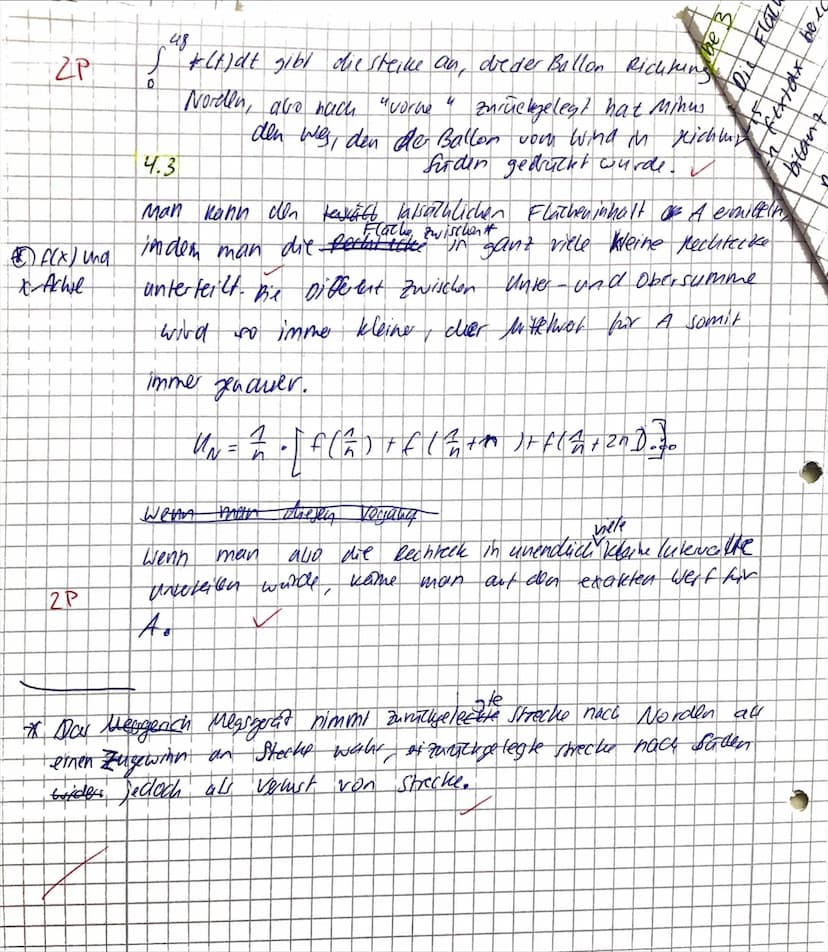 48
2P ∫ f(t)dt gibt die Strecke an, die der Ballon Richtung
0
Norden, also nach "vorne" zurückgelegt hat Minus
den Weg, den der Ballon vom Wind in Richtung
Süden gedrückt wurde.
4.3
Man kann den tatsächlichen Flächeninhalt A ermitteln,
indem man die Fläche zwischen* in ganz viele kleine Rechtecke
*) f(x) und
x-Achse
unterteilt. Die Different zwischen Unter- und Obersumme
wird so immer kleiner, der Mittelwert für A somit
immer genauer.
U_N = 1/n · [f(1/n) + f(1/n + n) + f(1/n + 2n)...].
Wenn man diesen Vorgang
Wenn man also die Rechteck in unendlich viele kleine Intervalle
unterteilen würde, käme man auf den exakten Wert für
2P
A.
* Das Messgerät nimmt zurückgelegte Strecke nach Norden als
einen Zugewinn an Strecke wahr, zurückgelegte Strecke nach Süden
jedoch als Verlust von Strecke.
be 3
Die Fläch
bilanz